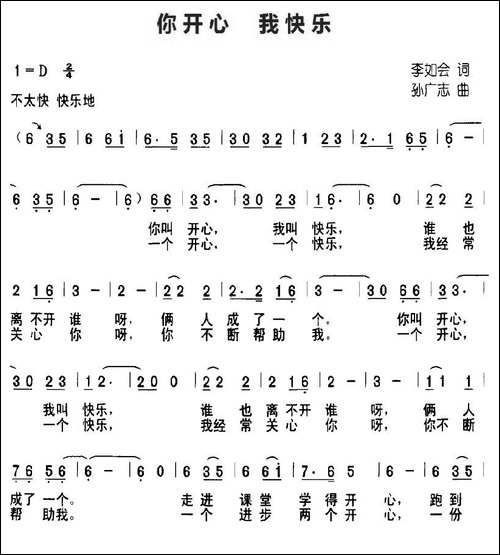 你开心 我快乐
1=D 2/4
李如会 词
不太快 快乐地
孙广志 曲
(6 35 | 6 6i | 6· 5 35 | 30 32 | 1· 23 | 2· 1 65 | 6 - |
6 35 | 6 - | 6) 66 | 33· | 30 23 | 16· | 6 0 | 22 2 |
你叫 开心, 我叫 快乐, 谁 也
一个 开心, 一个 快乐, 我经 常
2 16 | 3 - | 2 - | 22 2 | 2· 2 16 | 3 - | 30 66 | 33· |
离 不开 谁 呀, 俩 人 成了 一 个。 你叫 开心,
关 心 你 呀, 你 不 断 帮助 我。 一个 开心,
30 23 | 12· | 20 0 | 22 2 | 2 16 | 2 - | 3 - | 11 1 |
我叫 快乐, 谁 也 离 不开 谁 呀, 俩 人
一个 快乐, 我经 常 关 心 你 呀, 你不 断
76 56 | 6 - | 6 0 | 6 35 | 6 6i | 7· 6 | 5 6 | 6 35 |
成了 一个。 走进 课堂 学 得 开 心, 跑到
帮 助我。 一个 进步 两个 开心, 一份